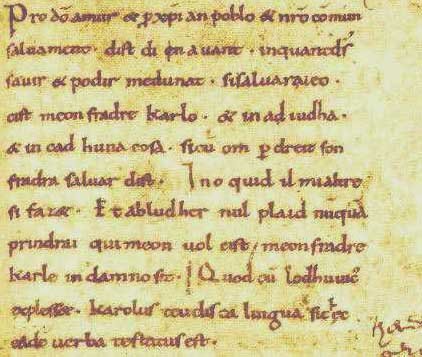 Pro dō amur & p xp̄ian poblo & nr̄o cōmun
saluament. dist di en auant. inquantd̄s
sauir & podir medunat. sisaluaraieo.
cist meon fradre karlo. & in ad iudha.
& in cad huna cosa. sicū om p dreit son
fradra saluar dist. Ino quid il mialtre
si faz&. Et abludher nul plaid nūquā
prindrai qui meon uol cist meonfradre
karle in damno sit. Quod cū lodhuuic̄
explesset. karolus teudisca lingua sic ec
eadē uerba testatus est.